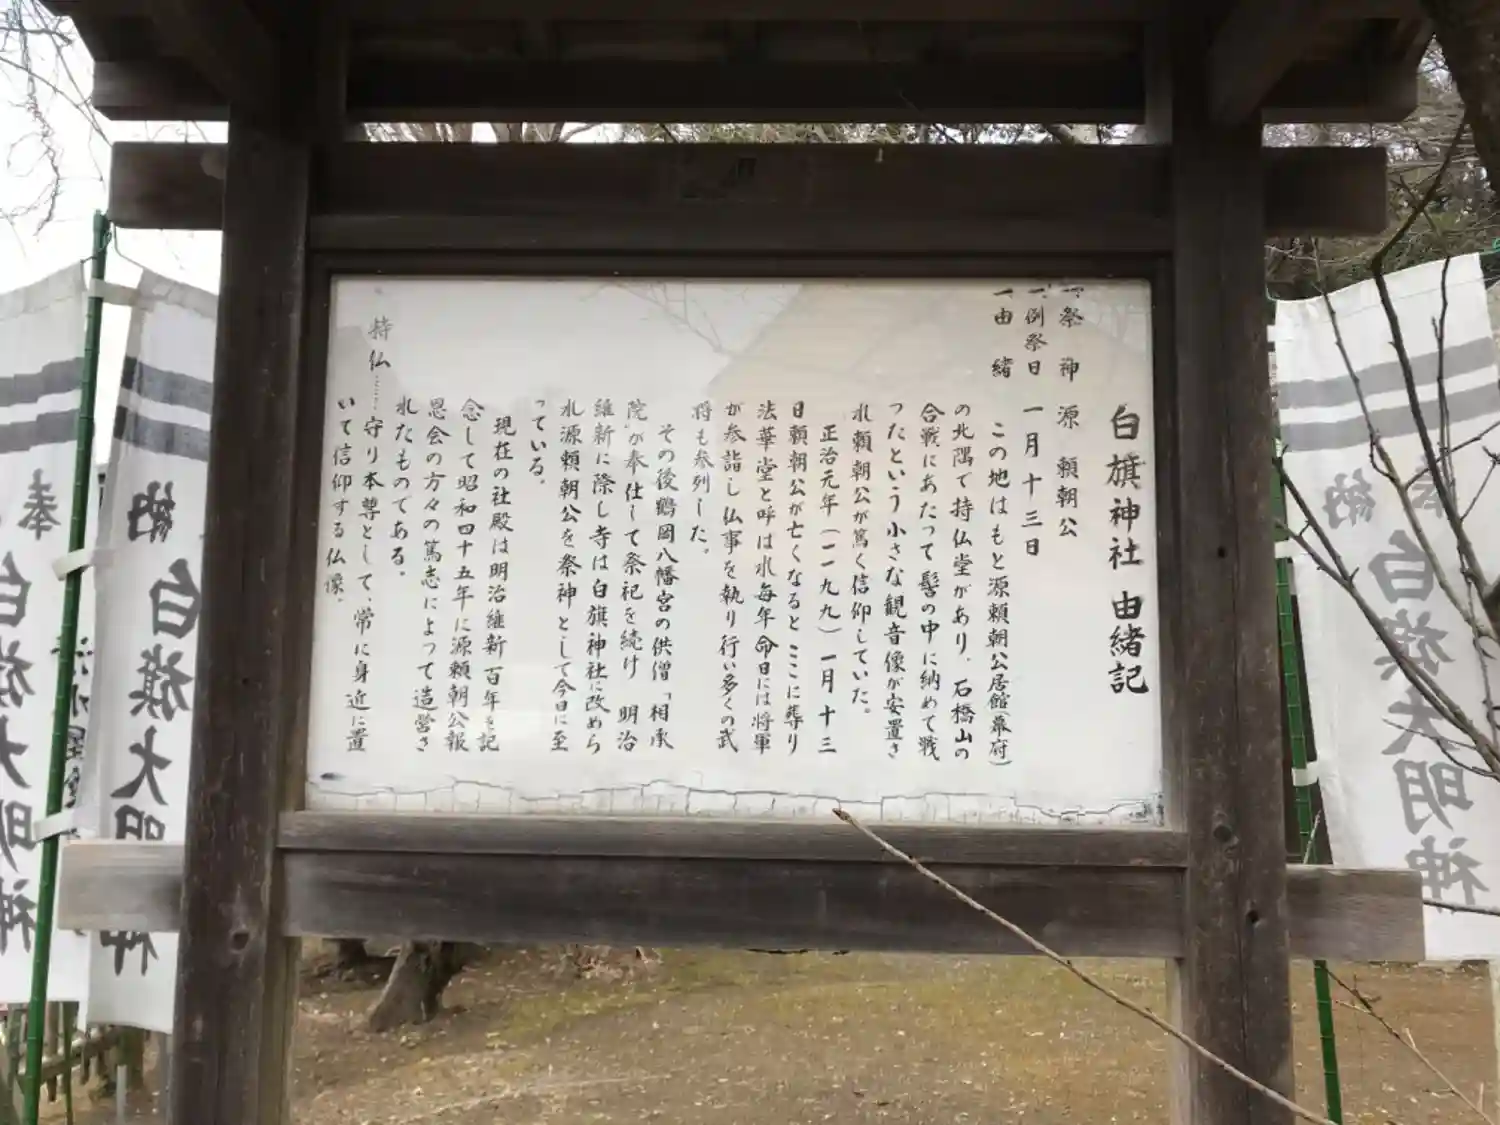 白旗神社 由緒記
一、祭 神 源 頼朝公
一、例祭日 一月十三日
一、由 緒
この地はもと源頼朝公居館(幕府)
の北隅で持仏堂があり、石橋山の
合戦にあたって髻の中に納めて戦
ったという小さな観音像が安置さ
れ頼朝公が篤く信仰していた。
正治元年(一一九九)一月十三
日頼朝公が亡くなるとここに葬り
法華堂と呼ばれ毎年命日には将軍
が参詣し仏事を執り行い多くの武
将も参列した。
その後鶴岡八幡宮の供僧「相承
院」が奉仕して祭祀を続け 明治
維新に際し寺は白旗神社に改めら
れ源頼朝公を祭神として今日に至
っている。
現在の社殿は明治維新百年を記
念して昭和四十五年に源頼朝公報
恩会の方々の篤志によって造営さ
れたものである。
持仏……守り本尊として、常に身近に置
いて信仰する仏像。
奉
白旗大明神
納
白旗大明神
納
奉
白旗大明神